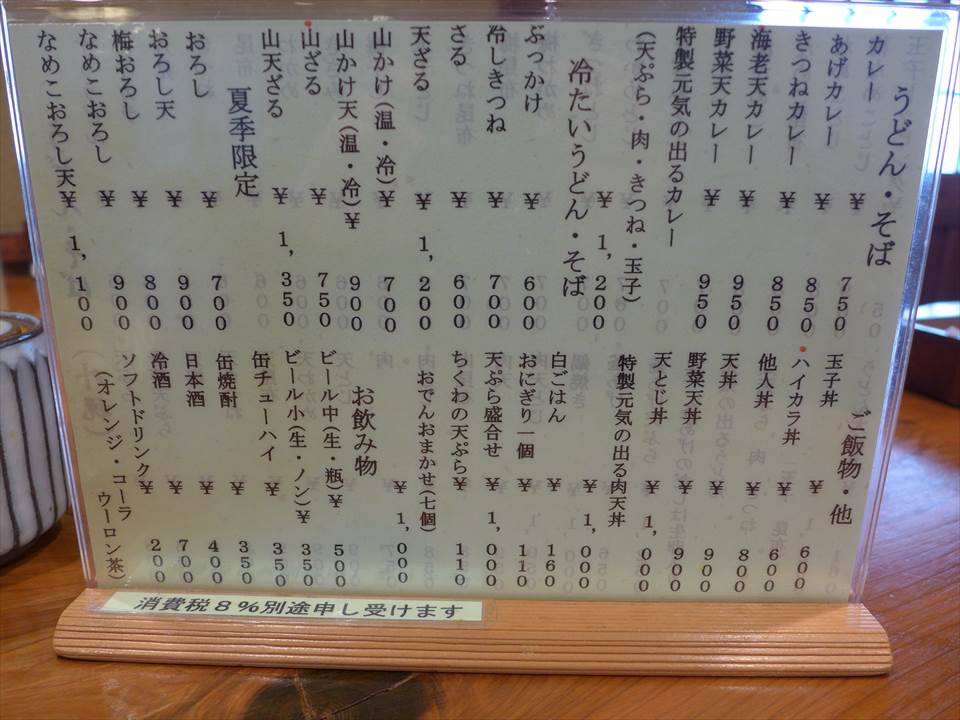 うどん・そば
カレー ¥ 750
あげカレー ¥ 850
きつねカレー ¥ 850
海老天カレー ¥ 950
野菜天カレー ¥ 950
特製元気の出るカレー ¥ 1,200
(天ぷら・肉・きつね・玉子)
冷たいうどん・そば
ぶっかけ ¥ 600
冷しきつね ¥ 700
ざる ¥ 600
天ざる ¥ 1,200
山かけ(温・冷) ¥ 700
山かけ天(温・冷) ¥ 900
山ざる ¥ 750
山天ざる ¥ 1,350
夏季限定
おろし ¥ 700
おろし天 ¥ 900
梅おろし ¥ 800
なめこおろし ¥ 900
なめこおろし天 ¥ 1,100
ご飯物・他
玉子丼 ¥ 600
ハイカラ丼 ¥ 600
他人丼 ¥ 800
天丼 ¥ 900
野菜天丼 ¥ 900
天とじ丼 ¥ 1,000
特製元気の出る肉天丼 ¥ 1,000
白ごはん ¥ 160
おにぎり一個 ¥ 110
天ぷら盛合せ ¥ 1,000
ちくわの天ぷら ¥ 110
おでんおまかせ(七個) ¥ 1,000
お飲み物
ビール中(生・瓶) ¥ 500
ビール小(生・ノン) ¥ 350
缶チューハイ ¥ 350
缶焼酎 ¥ 350
日本酒 ¥ 400
冷酒 ¥ 700
ソフトドリンク ¥ 200
(オレンジ・コーラ
ウーロン茶)
消費税8%別途申し受けます